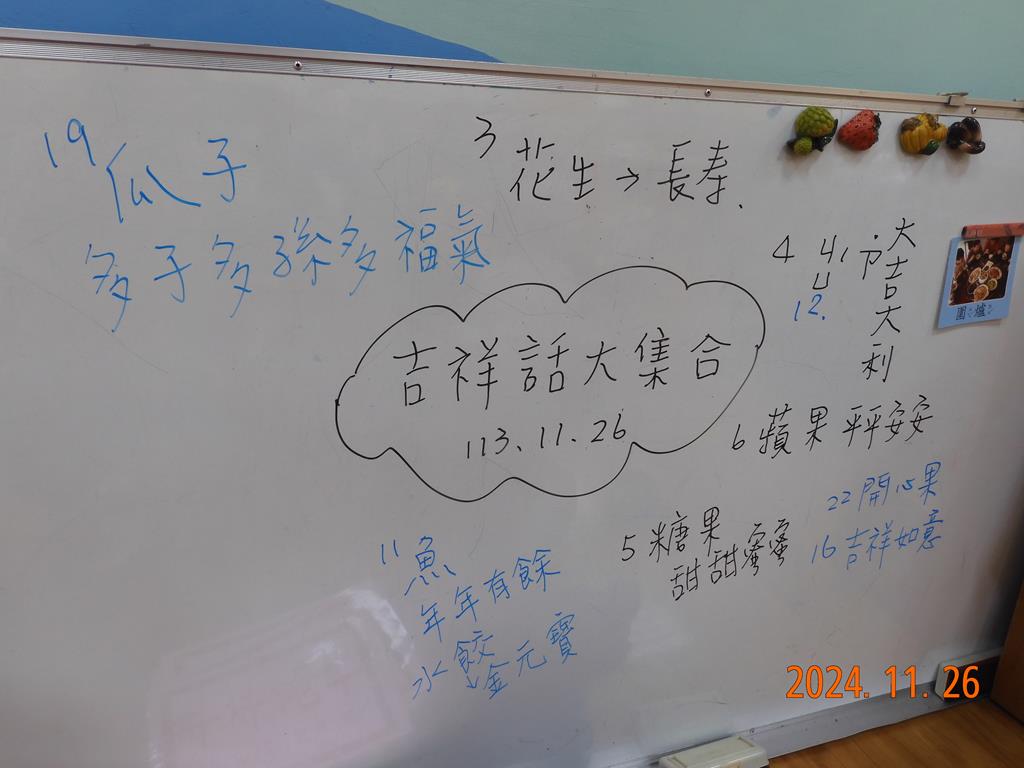 19 瓜子
多子多孫多福氣
3 花生→長壽、
4 ㄐㄩˊ ㄗ˙
12.
大吉大利
圍爐
吉祥話大集合
113、11.26
6 蘋果 平平安安
22 開心果
16 吉祥如意
5 糖果
甜甜蜜蜜
11 魚
年年有餘
水餃
↓金元寶
2024. 11. 26